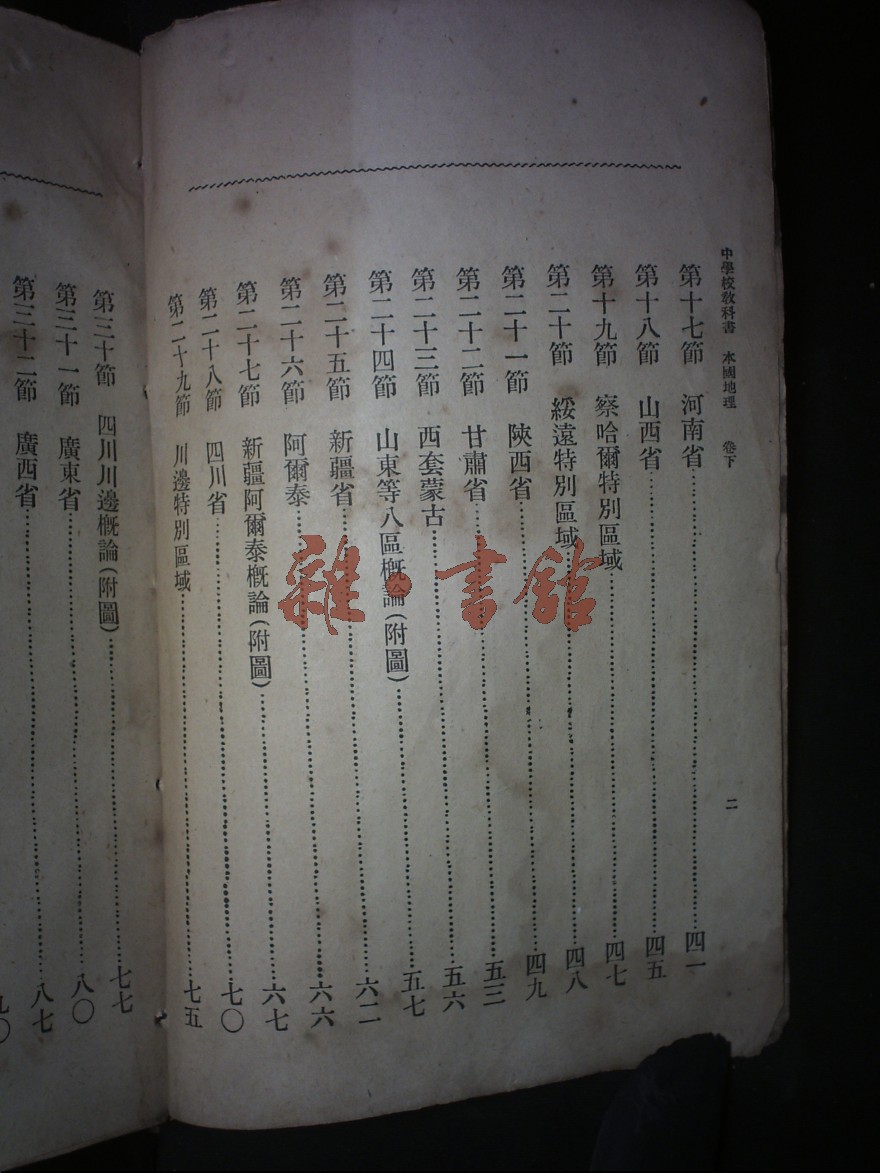 中學校教科書 本國地理 卷下 二
第十七節 河南省 四一
第十八節 山西省 四五
第十九節 察哈爾特別區域 四七
第二十節 綏遠特別區域 四八
第二十一節 陝西省 四九
第二十二節 甘肅省 五三
第二十三節 西套蒙古 五六
第二十四節 山東等八區槪論(附圖) 五七
第二十五節 新疆省 六二
第二十六節 阿爾泰 六六
第二十七節 新疆阿爾泰槪論(附圖) 六七
第二十八節 四川省 七〇
第二十九節 川邊特別區域 七五
第三十節 四川川邊槪論(附圖) 七七
第三十一節 廣東省 八〇
第三十二節 廣西省 八七
九〇
雜·書館